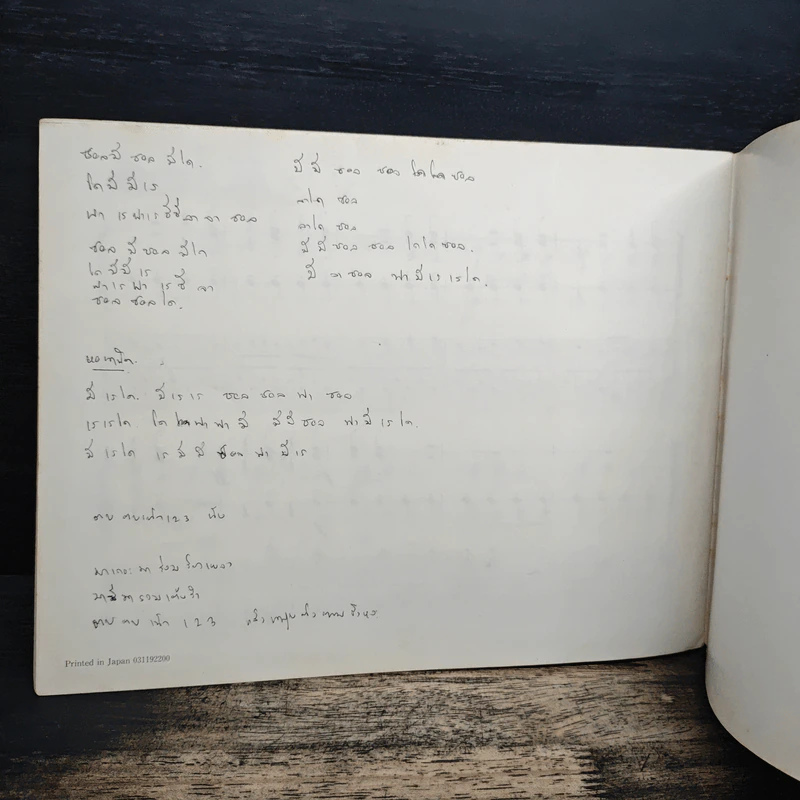 ซอล มี ซอล มี โด.
โด มี มี เร
ฟา เร ฟา เร ที ที ลา ลา ซอล
ซอล มี ซอล มี โด
โด มี มี เร
ฟา เร ฟา เร ที ลา
ซอล ซอล โด.
มี มี ซอล ซอล โด โด ซอล
ลา โด ซอล
ลา โด ซอล
มี มี ซอล ซอล โด โด ซอล.
มี ลา ซอล ฟา มี เร เร โด.
มี เร โด. มี เร เร ซอล ซอล ฟา ซอล
เร เร โด โด ฟา ฟา มี มี มี ซอล ฟา มี เร โด.
มี เร โด เร มี มี ซอล ฟา มี เร
ตบ ตบ เท้า 1 2 3
มาเถอะ มา ร่วม เพลง
มา มา รวม
ตบ ตบ เท้า 1 2 3
Printed in Japan 031192200